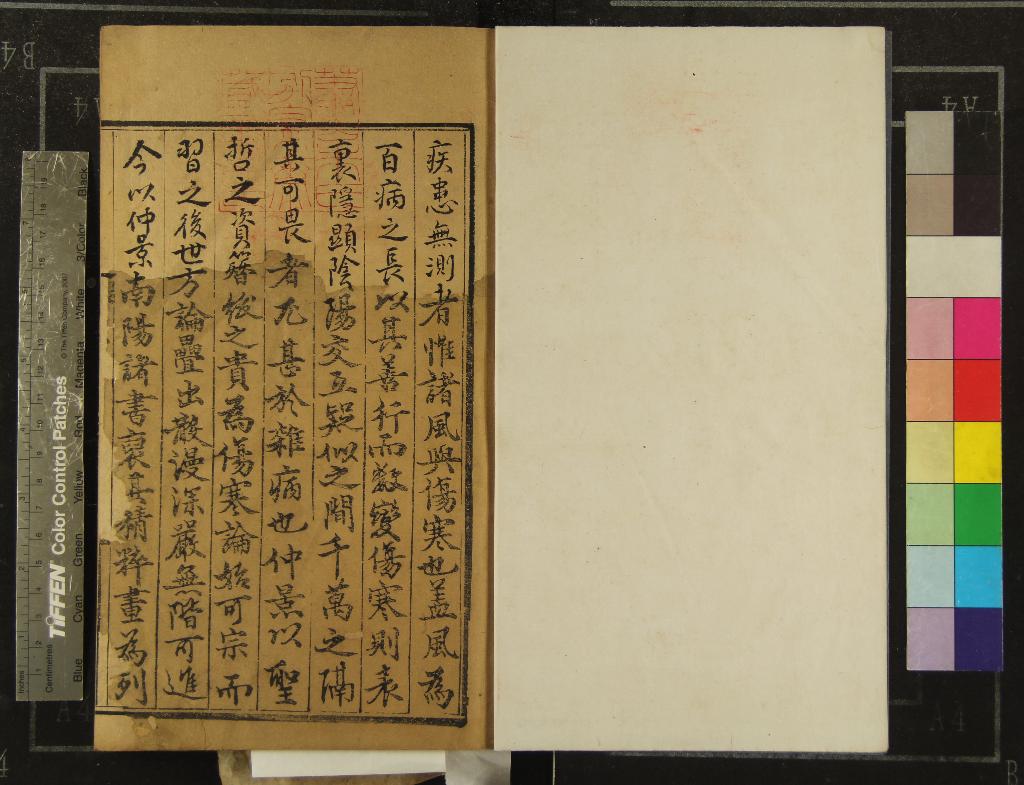 疾患無測者惟諸風與傷寒也盖風為
百病之長以其善行而數變傷寒則表
裏隱顯陰陽交互疑似之間千萬之隔
其可畏者尤甚於雜病也仲景以聖
哲之資簪紱之貴為傷寒論始可宗而
習之後世方論疊出散漫深嚴無階可進
今以仲景南陽諸書裒其精粹畫為列
TIFFEN Color Control Patches
© The Tiffen Company, 2007
Inches
Centimetres
Blue
Cyan
Green
Yellow
Red
Magenta
White
3/Color
Black
B4
A4
A4
A4
A4